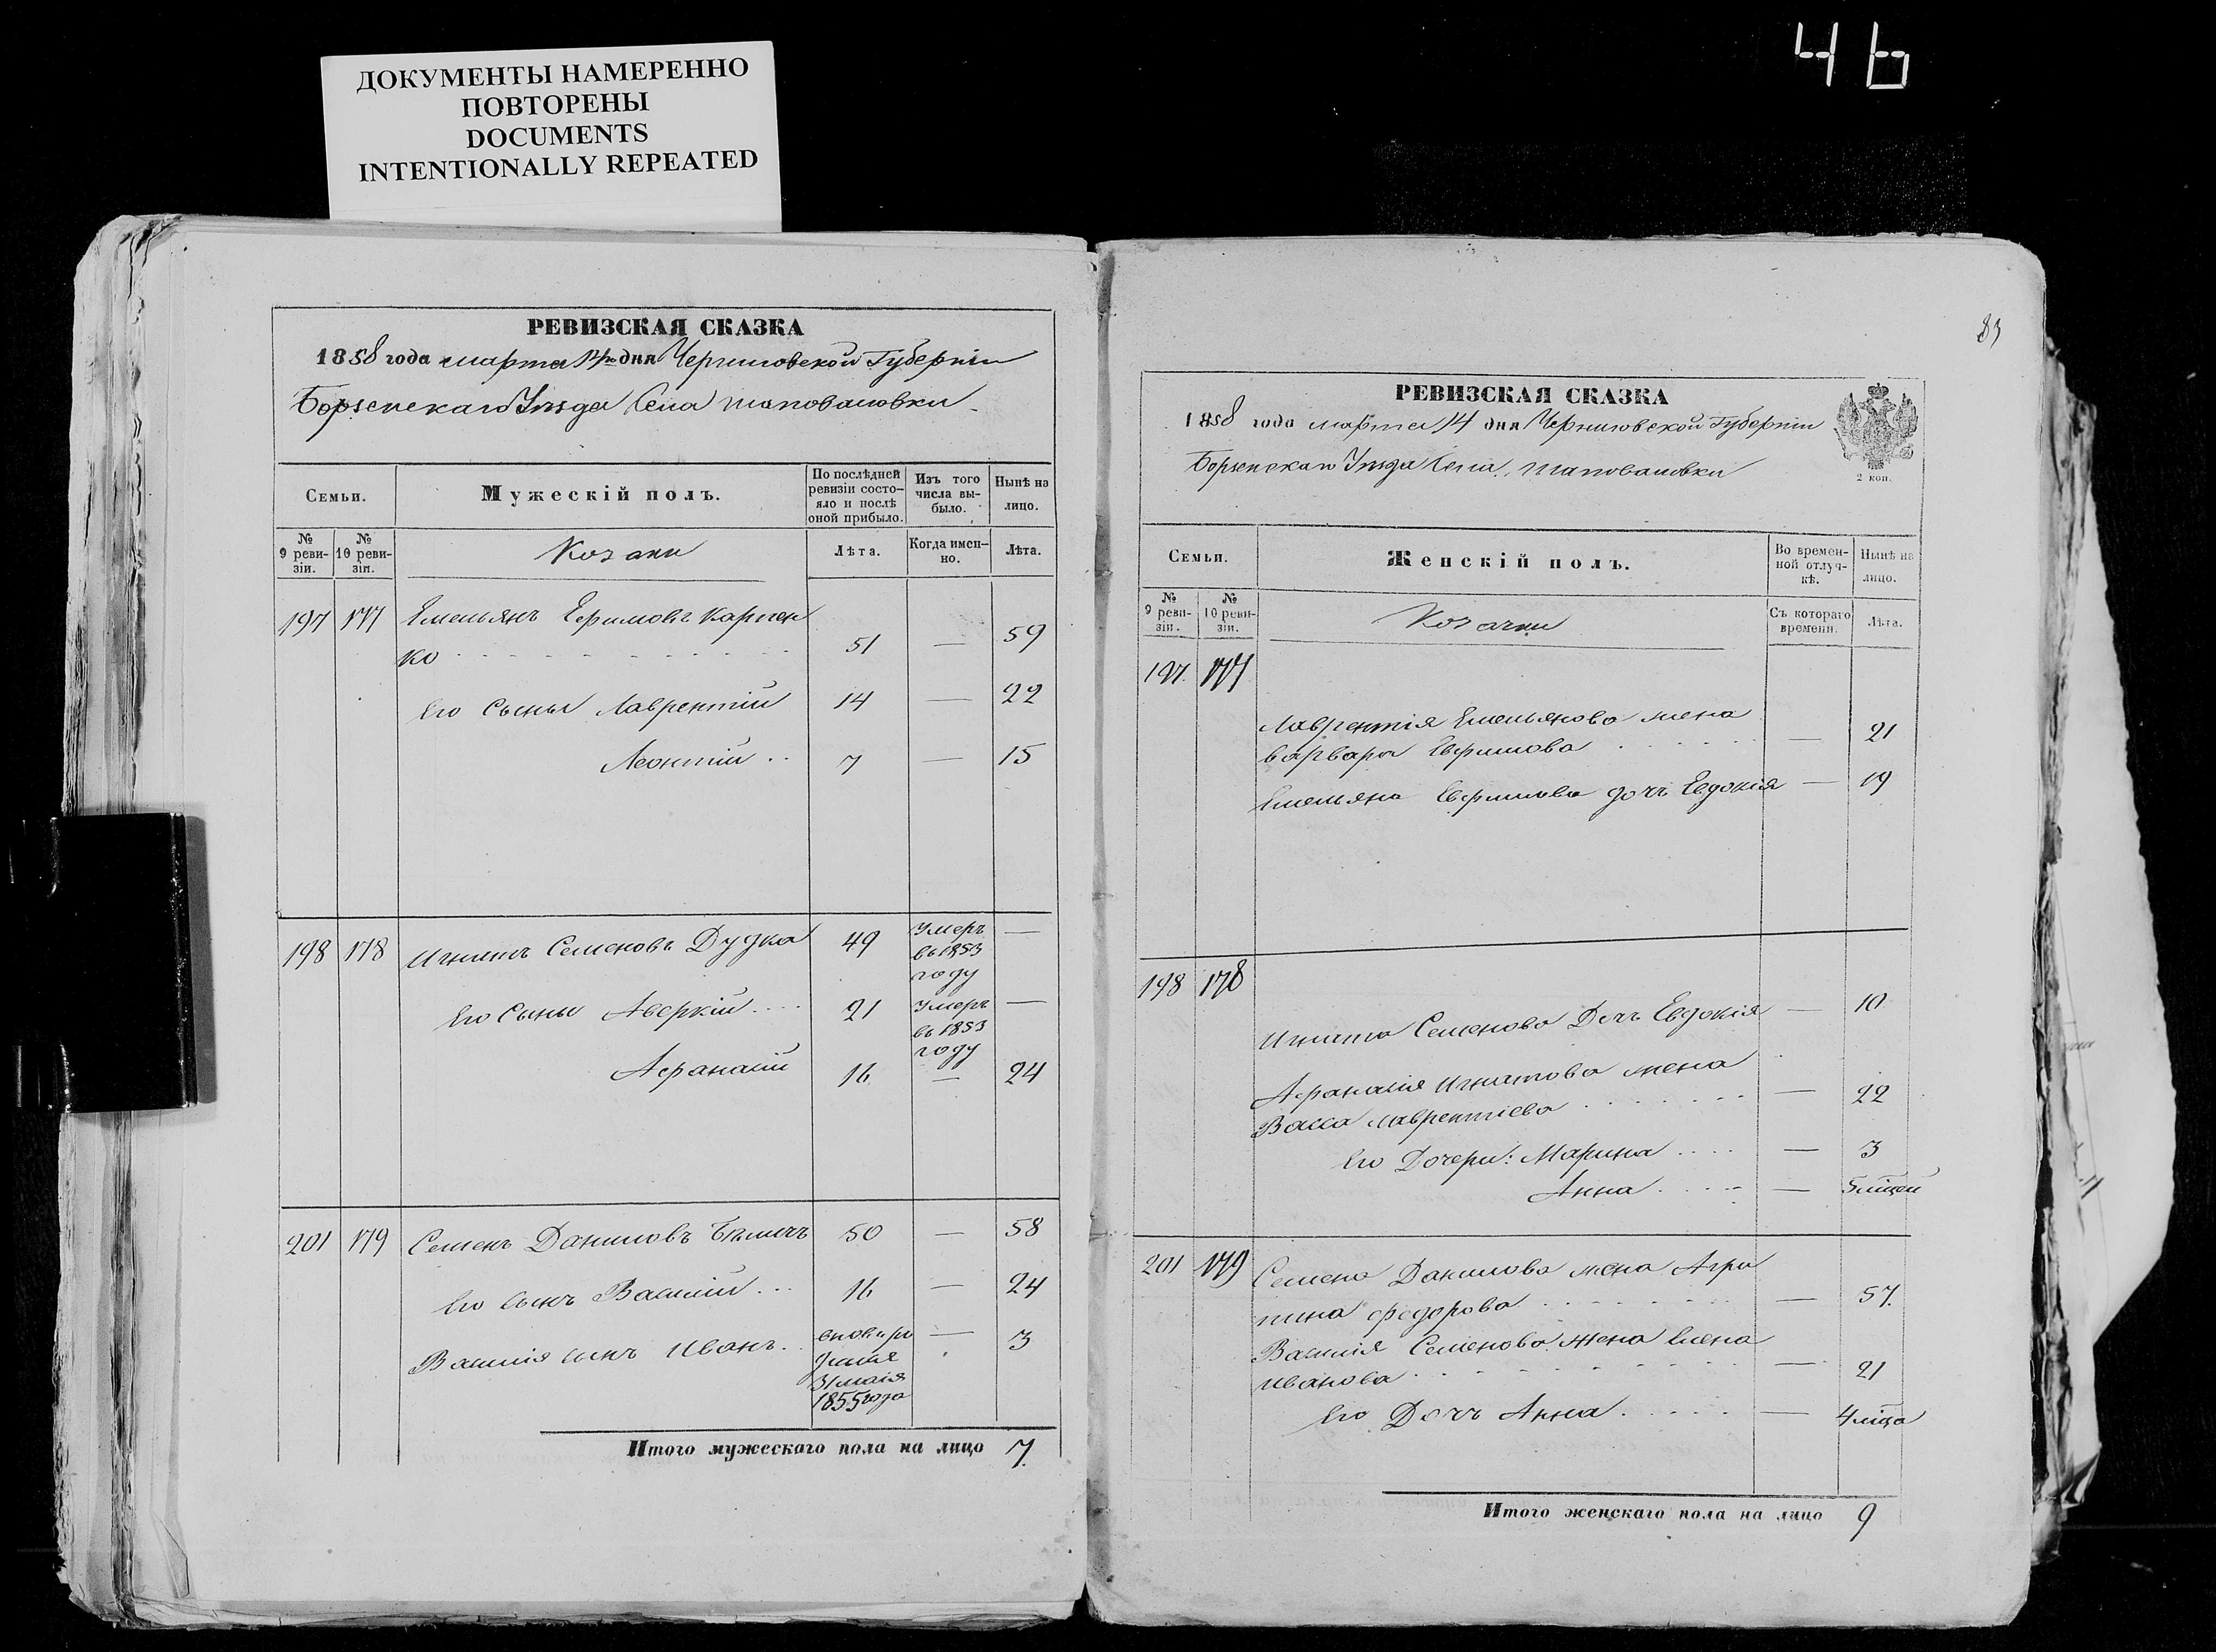 46
ДОКУМЕНТЫ НАМЕРЕННО
ПОВТОРЕНЫ
DOCUMENTS
INTENTIONALLY REPEATED
РЕВИЗСКАЯ СКАЗКА
1858 года марта 14го дня Черниговской Губерніи
Борзенскаго Уѣзда Села Шаповаловки
Семьи.
Мужескій полъ.
По послѣдней ревизіи состо-яло и послѣ оной прибыло.
Изъ того числа вы-было.
Нынѣ на лицо.
№ 9 реви-зіи.
№ 10 реви-зіи.
Козаки
Лѣта.
Когда имен-но.
Лѣта.
197 177 Емельянъ Ефимовъ Карпен
ко 51 — 59
Его Сыны Лаврентій 14 — 22
Леонтій 7 — 15
198 178 Игнатъ Семеновъ Дудка 49 Умеръ въ 1853 году —
Его Сыны Аверкій 21 Умеръ въ 1853 году —
Афанасій 16 — 24
201 179 Семенъ Даниловъ 50 — 58
Его сынъ Василій 16 — 24
Василія сынъ Иванъ 31 маія 1855 года — 3
Итого мужескаго пола на лицо 7.
83
РЕВИЗСКАЯ СКАЗКА
1858 года марта 14 дня Черниговской Губерніи
Борзенскаго Уѣзда Села Шаповаловки
2 коп.
Семьи.
Женскій полъ.
Во времен-ной отлуч-кѣ.
Нынѣ на лицо.
№ 9 реви-зіи.
№ 10 реви-зіи.
Козачки
Съ котораго времени.
Лѣта.
197. 177
Лаврентія Емельянова жена
Варвара Ефимова — 21
Емельяна Ефимова дочь Евдокія — 19
198 178
Игната Семенова Дочь Евдокія — 10
Афанасія Игнатова жена
Васса Лаврентіева — 22
Его Дочери: Марина — 3
Анна — 5 мѣцей
201 179 Семена Данилова жена Агри
пина Федорова — 57.
Василія Семенова жена Елена
Иванова — 21
Его Дочь Анна — 4 мѣца
Итого женскаго пола на лицо 9